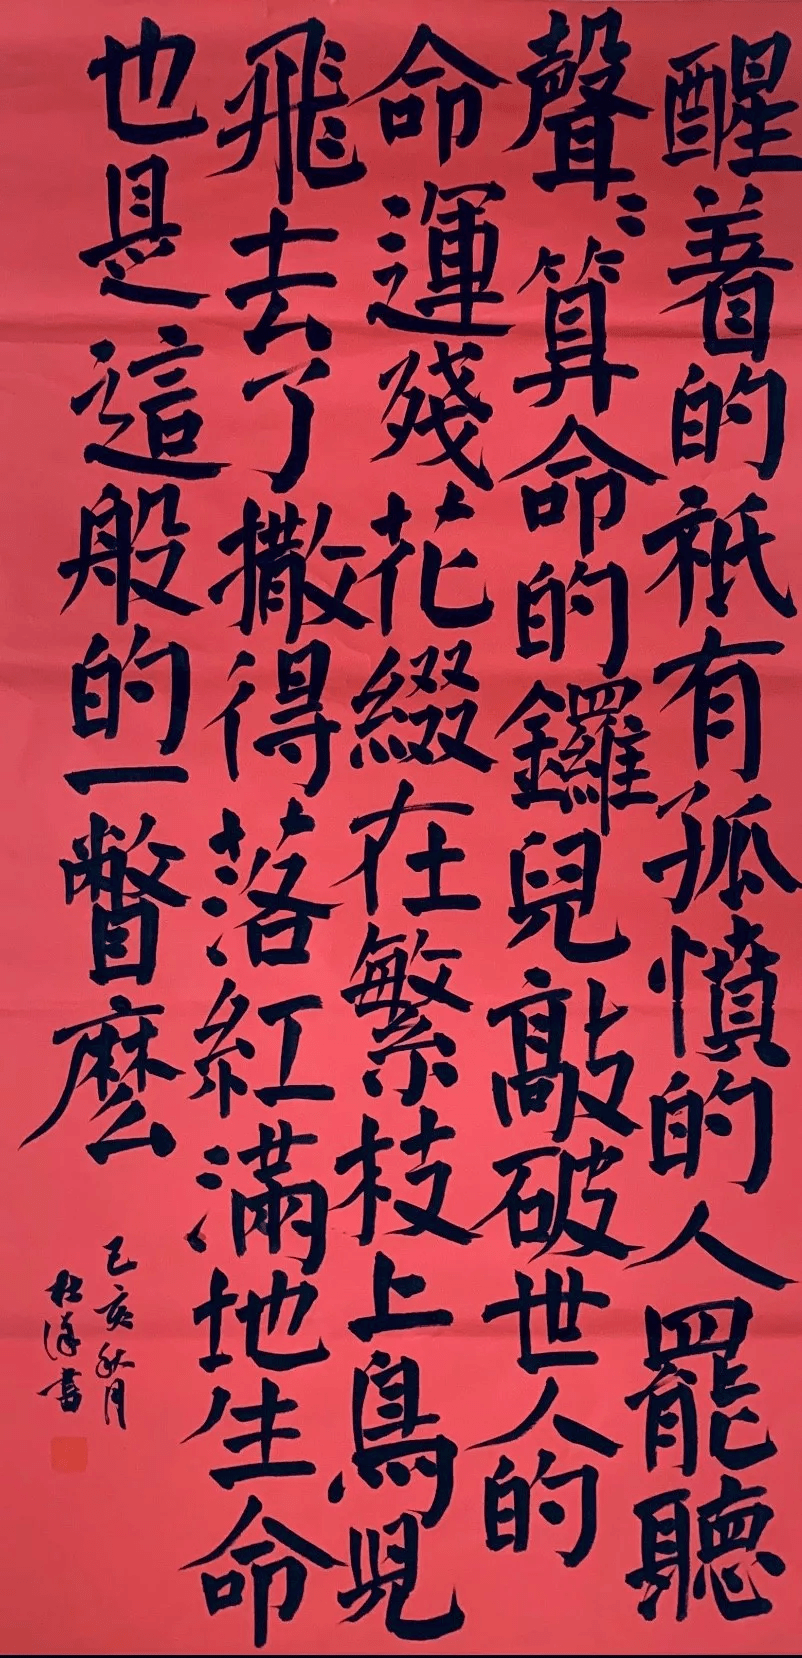 醒着的祇有孤憤的人罷聽
聲聲算命的鑼兒敲破世人的
命運殘花綴在繁枝上鳥兒
飛去了撒得落紅滿地生命
也是這般的一瞥麼
己亥秋月
書